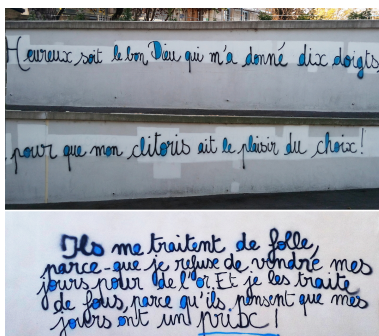 Heureux soit le bon Dieu qui m'a donné dix doigts,
pour que mon clitoris ait le plaisir du choix !
Ils me traitent de folle,
parce-que je refuse de vendre mes
jours pour de l'or. Et je les traite
de fous, parce qu'ils pensent que mes
jours ont un prix !